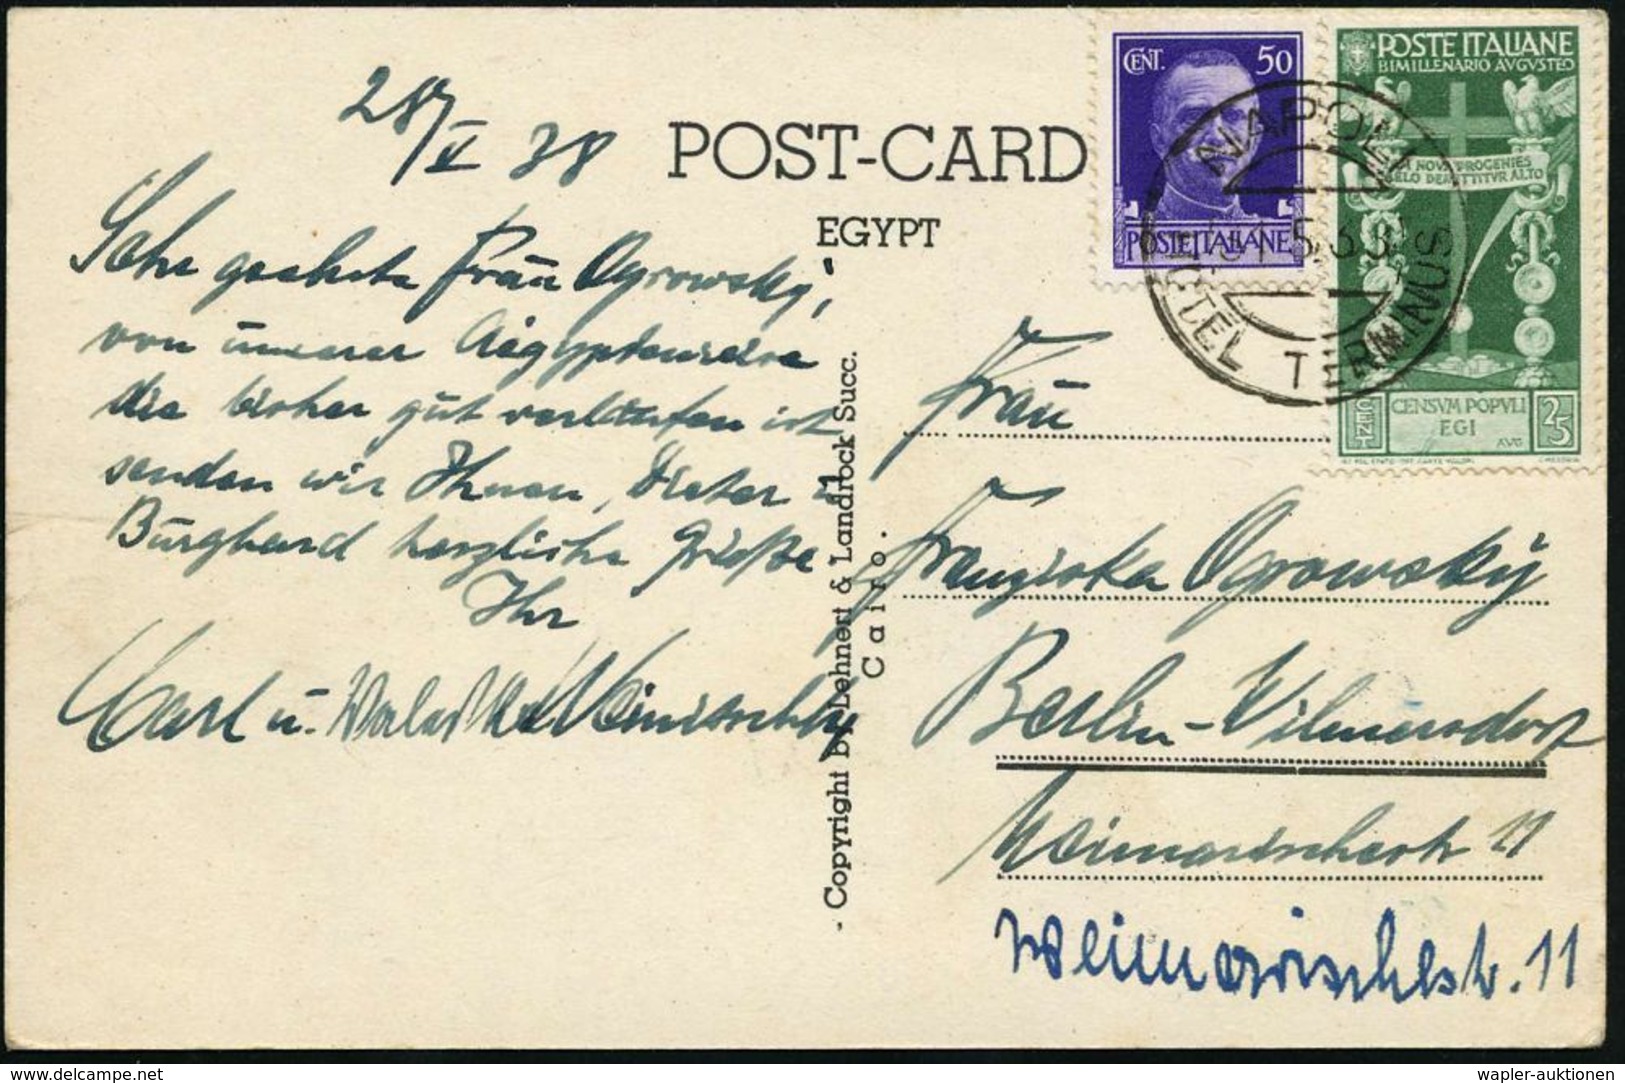 28/V 38
POST-CARD
EGYPT
Sehr geehrte Frau Ogrowsky,
von unserer Aegyptenreise
die bisher gut verlaufen ist
senden wir Ihnen, Dieter u
Burghard herzliche Grüße
Ihr
Carl u.
- Copyright by Lehnert & Landrock Succ.
Cairo.
CENT. 50
POSTE ITALIANE
POSTE ITALIANE
BIMILLENARIO AVGVSTEO
IAM NOVA PROGENIES
CAELO DEMITTITVR ALTO
CENSVM POPVLI
EGI
AVG
CENT 25
NAPOLI
HOTEL TERMINUS
Frau
Franziska Ogrowsky
Berlin-Wilmersdorf
Weimarischestr 11
Weimarischestr. 11
wapler-auktionen
www.delcampe.net